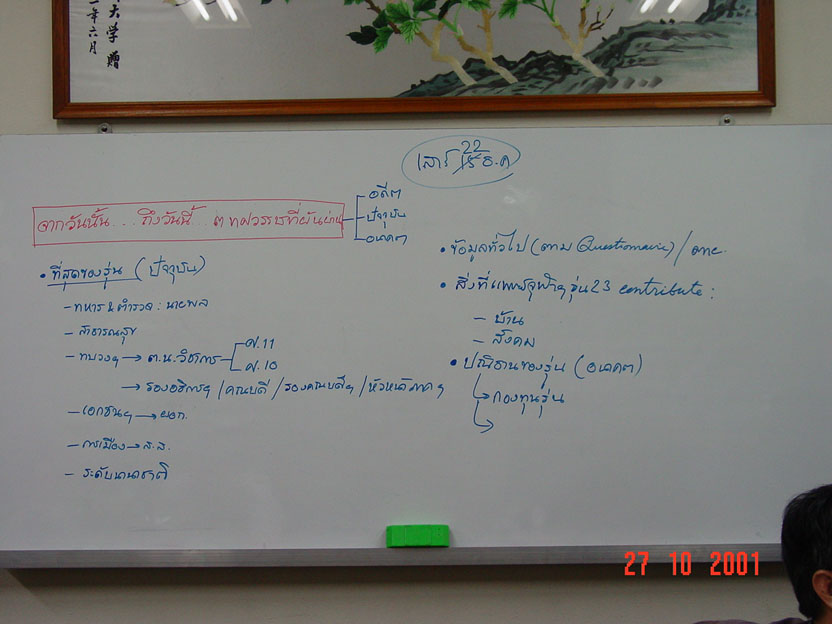 大学 贈
一年六月
เสาร์ 22 ธ.ค
จากวันนั้น...ถึงวันนี้...๓ ทศวรรษที่ผันผ่าน
อดีต
ปัจจุบัน
อนาคต
• ที่สุดของรุ่น (ปัจจุบัน)
- ทหาร & ตำรวจ : นายพล
- สาธารณสุข
- ทบวงฯ → ต.น. วิชาการ
ศ.11
ศ.10
→ รองอธิการฯ / คณบดี / รองคณบดีฯ / หัวหน้าภาคฯ
- เอกชนฯ → ผอก.
- การเมือง → ส.ส.
- ระดับนานาชาติ
• ข้อมูลทั่วไป (ตาม Questionnaire) /
• สิ่งที่แพทย์จุฬาฯรุ่น 23 contribute :
- บ้าน
- สังคม
• ปณิธานของรุ่น (อนาคต)
กองทุนรุ่น
27 10 2001